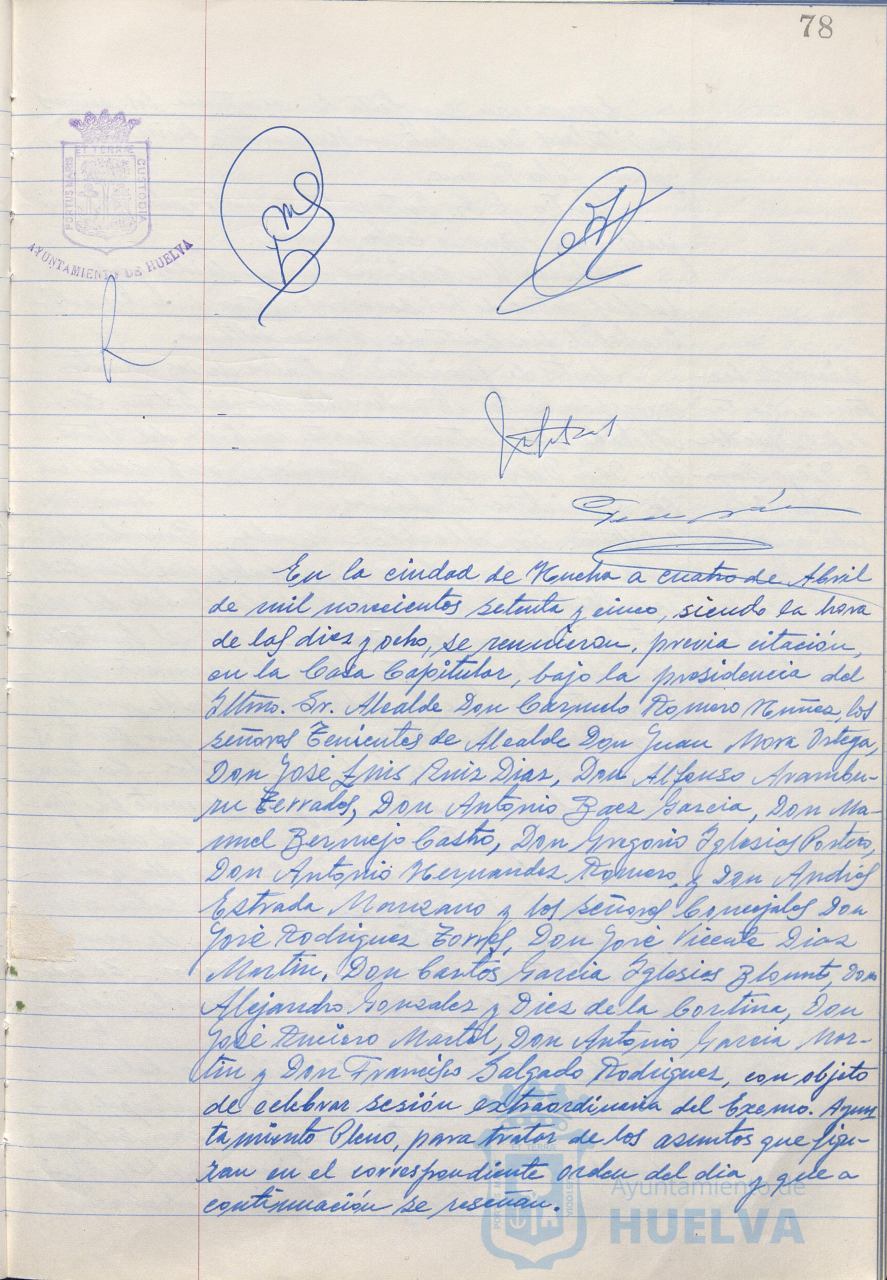 78
ET TERRAE
PORTUS MARIS
CUSTODIA
AYUNTAMIENTO DE HUELVA
En la ciudad de Huelva a cuatro de Abril
de mil novecientos setenta y cinco, siendo la hora
de las diez y ocho, se reunieron, previa citación,
en la Casa Capitular, bajo la presidencia del
Iltmo. Sr. Alcalde Don Carmelo Romero Núñez, los
señores Tenientes de Alcalde Don Juan Mora Ortega,
Don José Luis Ruiz Diaz, Don Alfonso Arambu-
ru Terrados, Don Antonio Baez Garcia, Don Ma-
nuel Bermejo Castro, Don Gregorio Iglesias Portero,
Don Antonio Hernandez Romero, y Don Andrés
Estrada Manzano y los señores Concejales Don
José Rodriguez Torres, Don José Vicente Diaz
Martin, Don Carlos Garcia Iglesias Blount, Don
Alejandro Gonzalez y Diez de la Cortina, Don
José Martel, Don Antonio Garcia Mar-
tin y Don Francisco Salgado Rodriguez, con objeto
de celebrar sesión extraordinaria del Excmo. Ayun
tamiento Pleno, para tratar de los asuntos que figu-
ran en el correspondiente orden del dia y que a
continuación se reseñan.
Ayuntamiento de
HUELVA